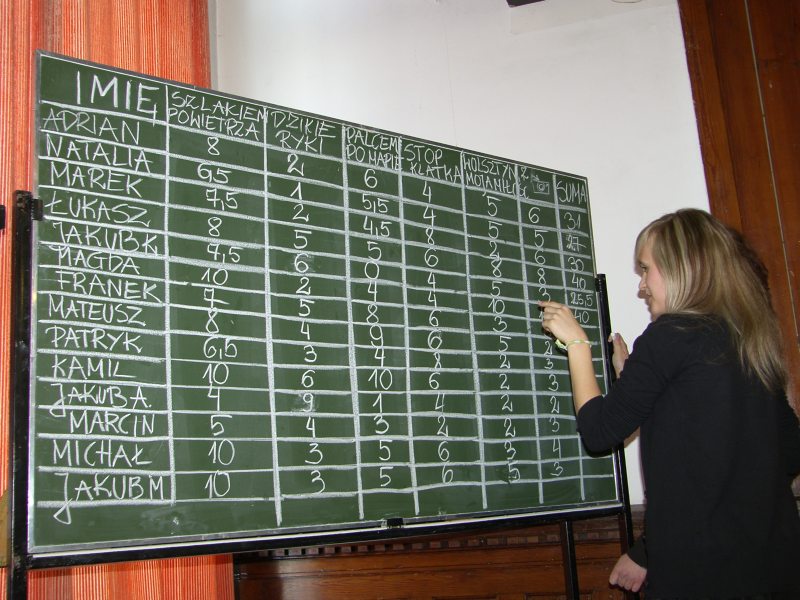 IMIĘ SZLAKIEM POWIETRZA DZIKIE RYKI PALCEM PO MAPIE STOP KLATKA HOLSZTYN SUMA
ADRIAN 8 2 6 4 5 6 31
NATALIA 6,5 1 5,5 4 5 5 27
MAREK 7,5 2 4,5 8 2 6 30
ŁUKASZ 8 5 5 6 8 8 40
JAKUB K. 7,5 6 0 4 5 25,5
MAGDA 10 2 4 4 10 40
FRANEK 7 5 8 6 3
MATEUSZ 8 4 9 6 5 2
PATRYK 6,5 3 4 8 2 3
KAMIL 10 6 10 6 2 3
JAKUB A. 4 9 1 4 2 2
MARCIN 5 4 3 2 2 3
MICHAŁ 10 3 5 6 3 4
JAKUB M 10 3 5 6 5 3